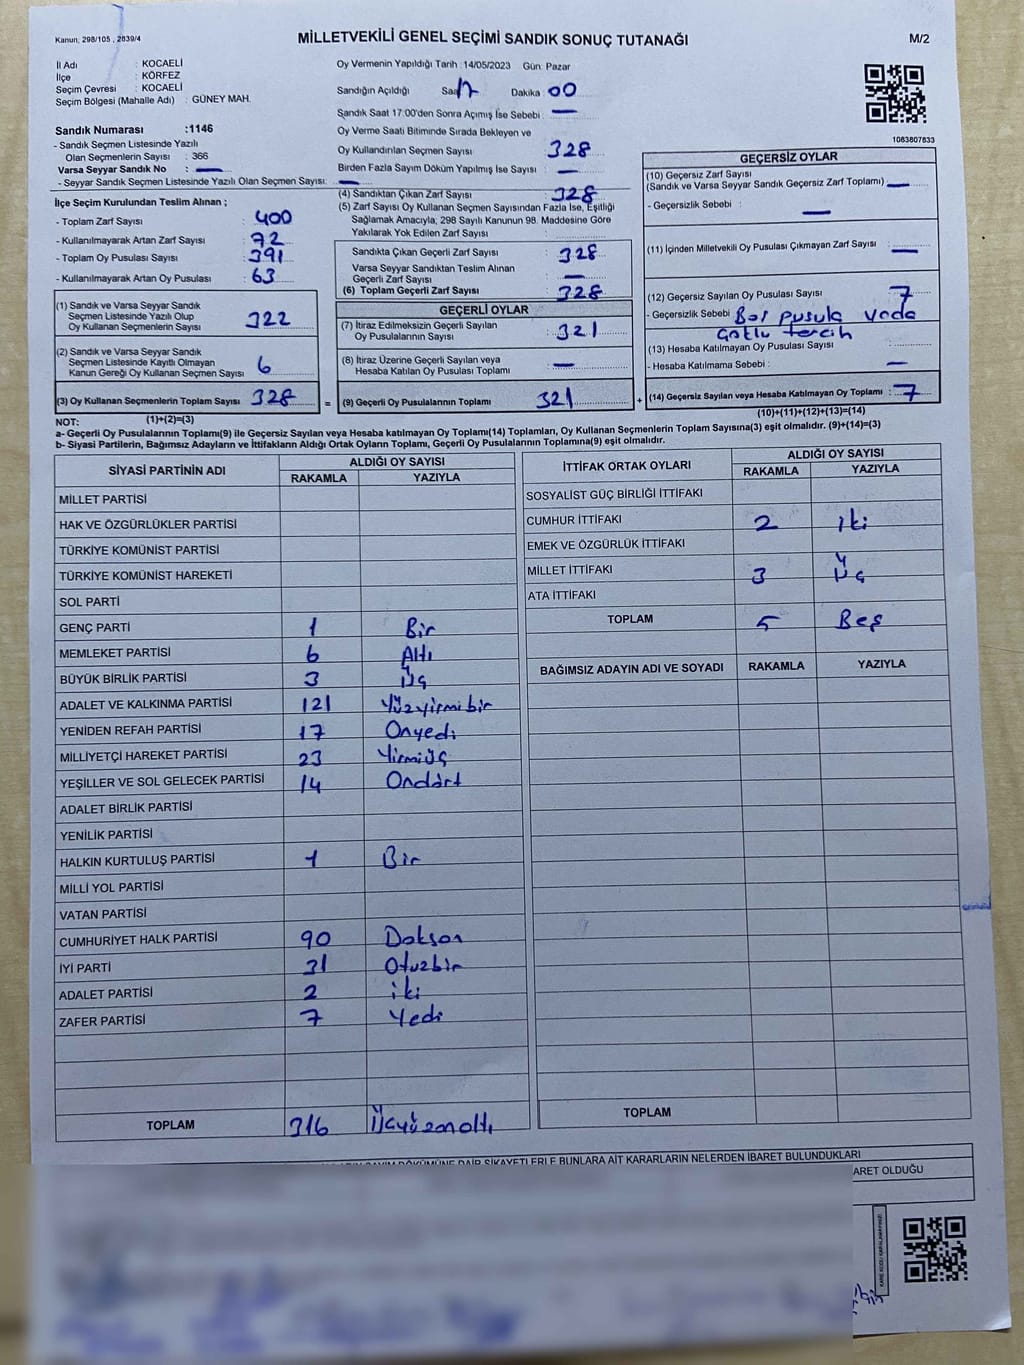 Kanun, 298/105 , 2839/4
MİLLETVEKİLİ GENEL SEÇİMİ SANDIK SONUÇ TUTANAĞI
M/2
İl Adı : KOCAELİ
İlçe : KÖRFEZ
Seçim Çevresi : KOCAELİ
Seçim Bölgesi (Mahalle Adı) : GÜNEY MAH.
Sandık Numarası :1146
- Sandık Seçmen Listesinde Yazılı
Olan Seçmenlerin Sayısı : 366
Varsa Seyyar Sandık No : —
- Seyyar Sandık Seçmen Listesinde Yazılı Olan Seçmen Sayısı: —
İlçe Seçim Kurulundan Teslim Alınan ;
- Toplam Zarf Sayısı : 400
- Kullanılmayarak Artan Zarf Sayısı : 72
- Toplam Oy Pusulası Sayısı : 391
- Kullanılmayarak Artan Oy Pusulası : 63
(1) Sandık ve Varsa Seyyar Sandık
Seçmen Listesinde Yazılı Olup
Oy Kullanan Seçmenlerin Sayısı 322
(2) Sandık ve Varsa Seyyar Sandık
Seçmen Listesinde Kayıtlı Olmayan
Kanun Gereği Oy Kullanan Seçmen Sayısı 6
(3) Oy Kullanan Seçmenlerin Toplam Sayısı 328 =
(1)+(2)=(3)
Oy Vermenin Yapıldığı Tarih :14/05/2023 Gün: Pazar
Sandığın Açıldığı Saat 17 Dakika : 00
Sandık Saat 17:00'den Sonra Açımış İse Sebebi : —
Oy Verme Saati Bitiminde Sırada Bekleyen ve
Oy Kullandırılan Seçmen Sayısı 328
Birden Fazla Sayım Döküm Yapılmış İse Sayısı : —
(4) Sandıktan Çıkan Zarf Sayısı : 328
(5) Zarf Sayısı Oy Kullanan Seçmen Sayısından Fazla İse, Eşitliği
Sağlamak Amacıyla; 298 Sayılı Kanunun 98. Maddesine Göre
Yakılarak Yok Edilen Zarf Sayısı :
Sandıkta Çıkan Geçerli Zarf Sayısı : 328
Varsa Seyyar Sandıktan Teslim Alınan
Geçerli Zarf Sayısı : —
(6) Toplam Geçerli Zarf Sayısı : 328
GEÇERLİ OYLAR
(7) İtiraz Edilmeksizin Geçerli Sayılan
Oy Pusulalarının Sayısı : 321
(8) İtiraz Üzerine Geçerli Sayılan veya
Hesaba Katılan Oy Pusulası Toplamı : —
(9) Geçerli Oy Pusulalarının Toplamı 321 +
1083807833
GEÇERSİZ OYLAR
(10) Geçersiz Zarf Sayısı
(Sandık ve Varsa Seyyar Sandık Geçersiz Zarf Toplamı) —
- Geçersizlik Sebebi : —
(11) İçinden Milletvekili Oy Pusulası Çıkmayan Zarf Sayısı : —
(12) Geçersiz Sayılan Oy Pusulası Sayısı : 7
- Geçersizlik Sebebi Boş pusula veda
çoklu tercih
(13) Hesaba Katılmayan Oy Pusulası Sayısı
- Hesaba Katılmama Sebebi : —
(14) Geçersiz Sayılan veya Hesaba Katılmayan Oy Toplamı : 7
(10)+(11)+(12)+(13)=(14)
NOT:
a- Geçerli Oy Pusulalarının Toplamı(9) ile Geçersiz Sayılan veya Hesaba katılmayan Oy Toplamı(14) Toplamları, Oy Kullanan Seçmenlerin Toplam Sayısına(3) eşit olmalıdır. (9)+(14)=(3)
b- Siyasi Partilerin, Bağımsız Adayların ve İttifakların Aldığı Ortak Oyların Toplamı, Geçerli Oy Pusulalarının Toplamına(9) eşit olmalıdır.
SİYASİ PARTİNİN ADI ALDIĞI OY SAYISI
RAKAMLA YAZIYLA
MİLLET PARTİSİ
HAK VE ÖZGÜRLÜKLER PARTİSİ
TÜRKİYE KOMÜNİST PARTİSİ
TÜRKİYE KOMÜNİST HAREKETİ
SOL PARTİ
GENÇ PARTİ 1 Bir
MEMLEKET PARTİSİ 6 Altı
BÜYÜK BİRLİK PARTİSİ 3 Üç
ADALET VE KALKINMA PARTİSİ 121 Yüzyirmibir
YENİDEN REFAH PARTİSİ 17 Onyedi
MİLLİYETÇİ HAREKET PARTİSİ 23 Yirmiüç
YEŞİLLER VE SOL GELECEK PARTİSİ 14 Ondört
ADALET BİRLİK PARTİSİ
YENİLİK PARTİSİ
HALKIN KURTULUŞ PARTİSİ 1 Bir
MİLLİ YOL PARTİSİ
VATAN PARTİSİ
CUMHURİYET HALK PARTİSİ 90 Doksan
İYİ PARTİ 31 Otuzbir
ADALET PARTİSİ 2 iki
ZAFER PARTİSİ 7 Yedi
TOPLAM 316 Üçyüzonaltı
İTTİFAK ORTAK OYLARI ALDIĞI OY SAYISI
RAKAMLA YAZIYLA
SOSYALİST GÜÇ BİRLİĞİ İTTİFAKI
CUMHUR İTTİFAKI 2 iki
EMEK VE ÖZGÜRLÜK İTTİFAKI
MİLLET İTTİFAKI 3 Üç
ATA İTTİFAKI
TOPLAM 5 Beş
BAĞIMSIZ ADAYIN ADI VE SOYADI RAKAMLA YAZIYLA
TOPLAM
SAYIM DÖKÜMÜNE DAİR ŞİKAYETLERLE BUNLARA AİT KARARLARIN NELERDEN İBARET BULUNDUKLARI
ARET OLDUĞU